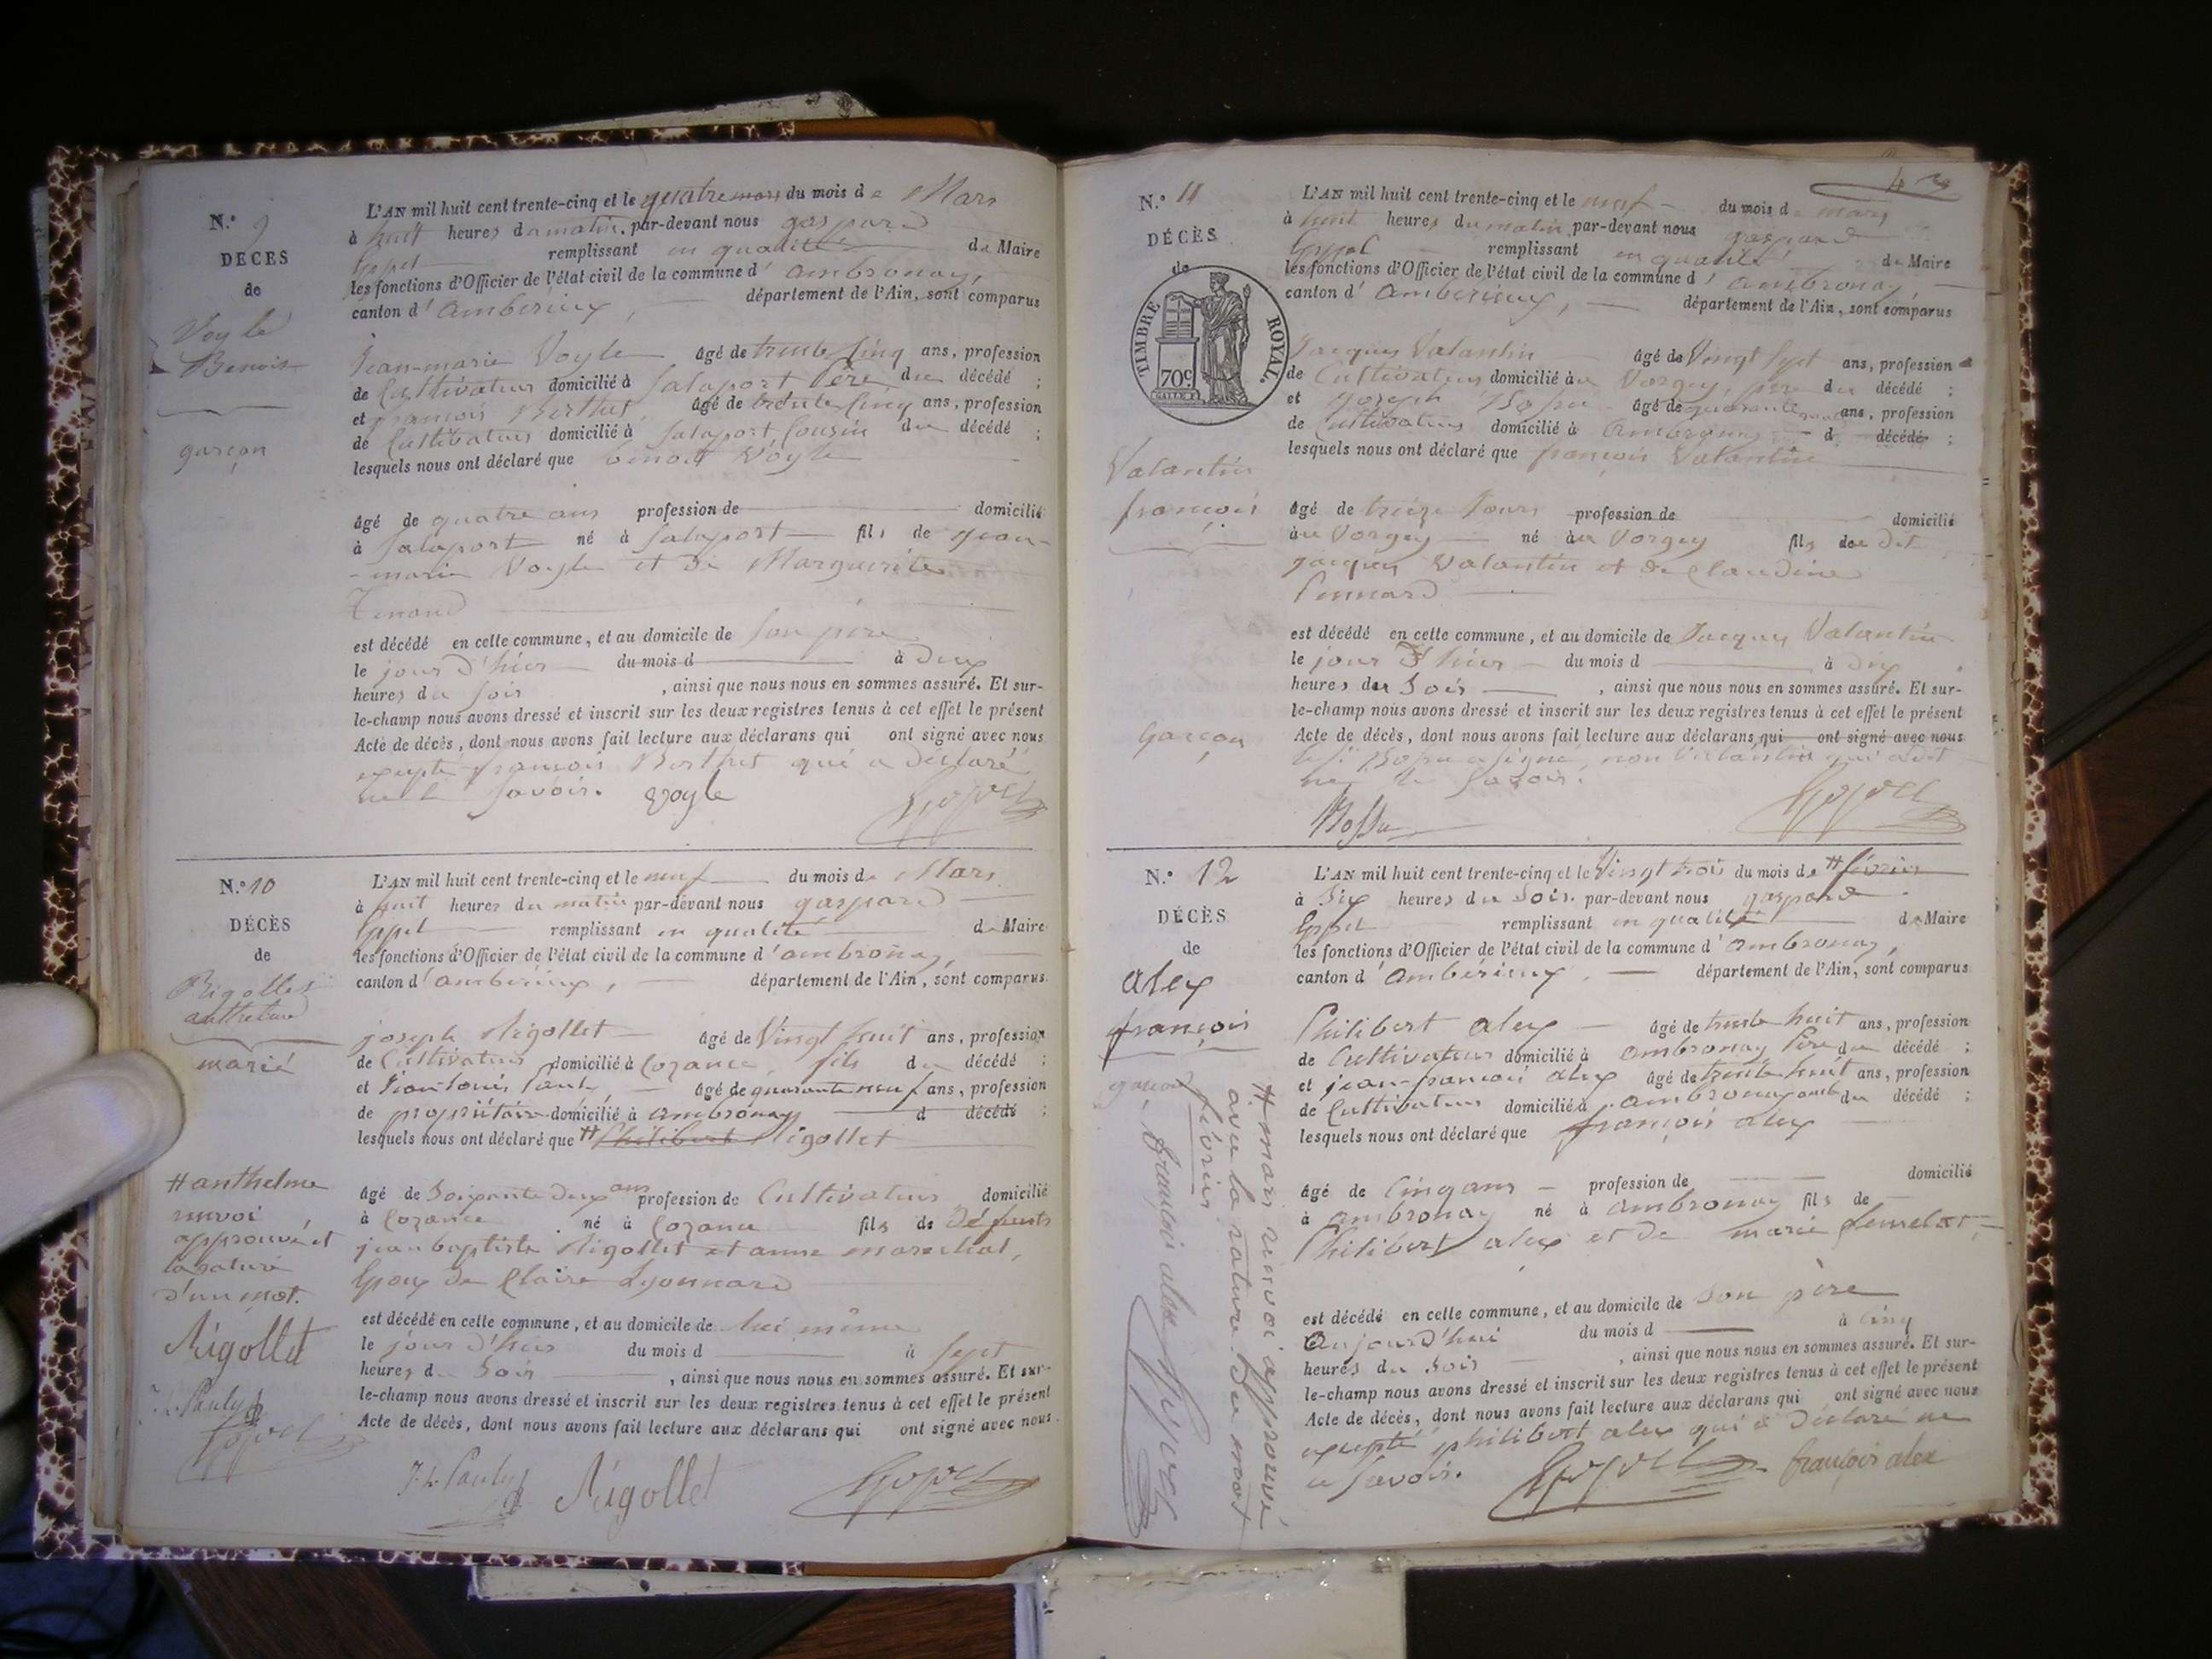 N.° 9
DÉCÈS
de
Voyle
Benoit
garçon
L'AN mil huit cent trente-cinq et le quatre mars du mois de Mars
à huit heures du matin, par-devant nous gaspard
remplissant en qualité de Maire
les fonctions d'Officier de l'état civil de la commune d'ambronay,
canton d'ambérieux, département de l'Ain, sont comparus
Jean-marie Voyle âgé de trente cinq ans, profession
de Cultivateur domicilié à Salaport Père du décédé ;
et françois Berthet âgé de trente cinq ans, profession
de Cultivateur domicilié à Salaport Cousin du décédé ;
lesquels nous ont déclaré que benoit Voyle
âgé de quatre ans profession de domicilié
à Salaport né à Salaport fils de jean-
-marie Voyle et de Marguerite
est décédé en cette commune, et au domicile de Son père
le jour d'hier du mois d à deux
heures du soir , ainsi que nous nous en sommes assuré. Et sur-
le-champ nous avons dressé et inscrit sur les deux registres tenus à cet effet le présent
Acte de décès, dont nous avons fait lecture aux déclarans qui ont signé avec nous
excepté françois Berthet qui a déclaré
ne le savoir. Voyle
N.° 10
DÉCÈS
de
Rigollet
anthelme
marié
L'AN mil huit cent trente-cinq et le neuf du mois de Mars
à huit heures du matin par-devant nous gaspard
remplissant en qualité de Maire
les fonctions d'Officier de l'état civil de la commune d'ambronay,
canton d'ambérieux, département de l'Ain, sont comparus
joseph Rigollet âgé de Vingt huit ans, profession
de Cultivateur domicilié à Cozance fils du décédé ;
et Jean Louis Pauly âgé de quarante neuf ans, profession
de propriétaire domicilié à ambronay d décédé ;
lesquels nous ont déclaré que # Philibert Rigollet
âgé de Soixante deux ans profession de Cultivateur domicilié
à Cozance né à Cozance fils de défunts
jean baptiste Rigollet et anne marechal,
Epoux de Claire Lyonnard
est décédé en cette commune, et au domicile de lui même
le jour d'hier du mois d à Sept
heures du Soir , ainsi que nous nous en sommes assuré. Et sur-
le-champ nous avons dressé et inscrit sur les deux registres tenus à cet effet le présent
Acte de décès, dont nous avons fait lecture aux déclarans qui ont signé avec nous
# anthelme
renvoi
approuvé et
la rature
d'un mot.
Rigollet
J. L. Pauly
J. L. Pauly Rigollet
N.° 11
DÉCÈS
de
TIMBRE ROYAL.
70c
Valantin
françois
Garçon
L'AN mil huit cent trente-cinq et le neuf du mois de mars
à huit heures du matin par-devant nous gaspard
remplissant en qualité de Maire
les fonctions d'Officier de l'état civil de la commune d'ambronay
canton d'ambérieux, département de l'Ain, sont comparus
Jacques Valantin âgé de Vingt Sept ans, profession
de Cultivateur domicilié au Vorgey, père du décédé ;
et joseph Bossu âgé de quarante ans, profession
de Cultivateur domicilié à ambronay d décédé ;
lesquels nous ont déclaré que françois Valantin
âgé de treize Jours profession de domicilié
au Vorgey né au Vorgey fils de dit
jacques Valantin et de Claudine
est décédé en cette commune, et au domicile de Jacques Valantin
le jour d'hier du mois d à dix
heures du Soir , ainsi que nous nous en sommes assuré. Et sur-
le-champ nous avons dressé et inscrit sur les deux registres tenus à cet effet le présent
Acte de décès, dont nous avons fait lecture aux déclarans qui ont signé avec nous
Bossu a signé, non Valantin qui a dit
ne le Savoir.
Bossu
N.° 12
DÉCÈS
de
alex
françois
garçon
L'AN mil huit cent trente-cinq et le Vingt trois du mois de # février
à Six heures du Soir par-devant nous gaspard
remplissant en qualité de Maire
les fonctions d'Officier de l'état civil de la commune d'ambronay,
canton d'ambérieux, département de l'Ain, sont comparus
Philibert alex âgé de trente huit ans, profession
de Cultivateur domicilié à ambronay Père du décédé ;
et jean-francois alex âgé de trente huit ans, profession
de Cultivateur domicilié à ambronay du décédé ;
lesquels nous ont déclaré que françois alex
âgé de Cinq ans profession de domicilié
à ambronay né à ambronay fils de
Philibert alex et de marie
est décédé en cette commune, et au domicile de Son père
Aujourd'hui du mois d à Cinq
heures du Soir , ainsi que nous nous en sommes assuré. Et sur-
le-champ nous avons dressé et inscrit sur les deux registres tenus à cet effet le présent
Acte de décès, dont nous avons fait lecture aux déclarans qui ont signé avec nous
excepté philibert alex qui a déclaré ne
le Savoir. françois alex
# mars renvoi approuvé
avec la rature du mot
février.
françois alex